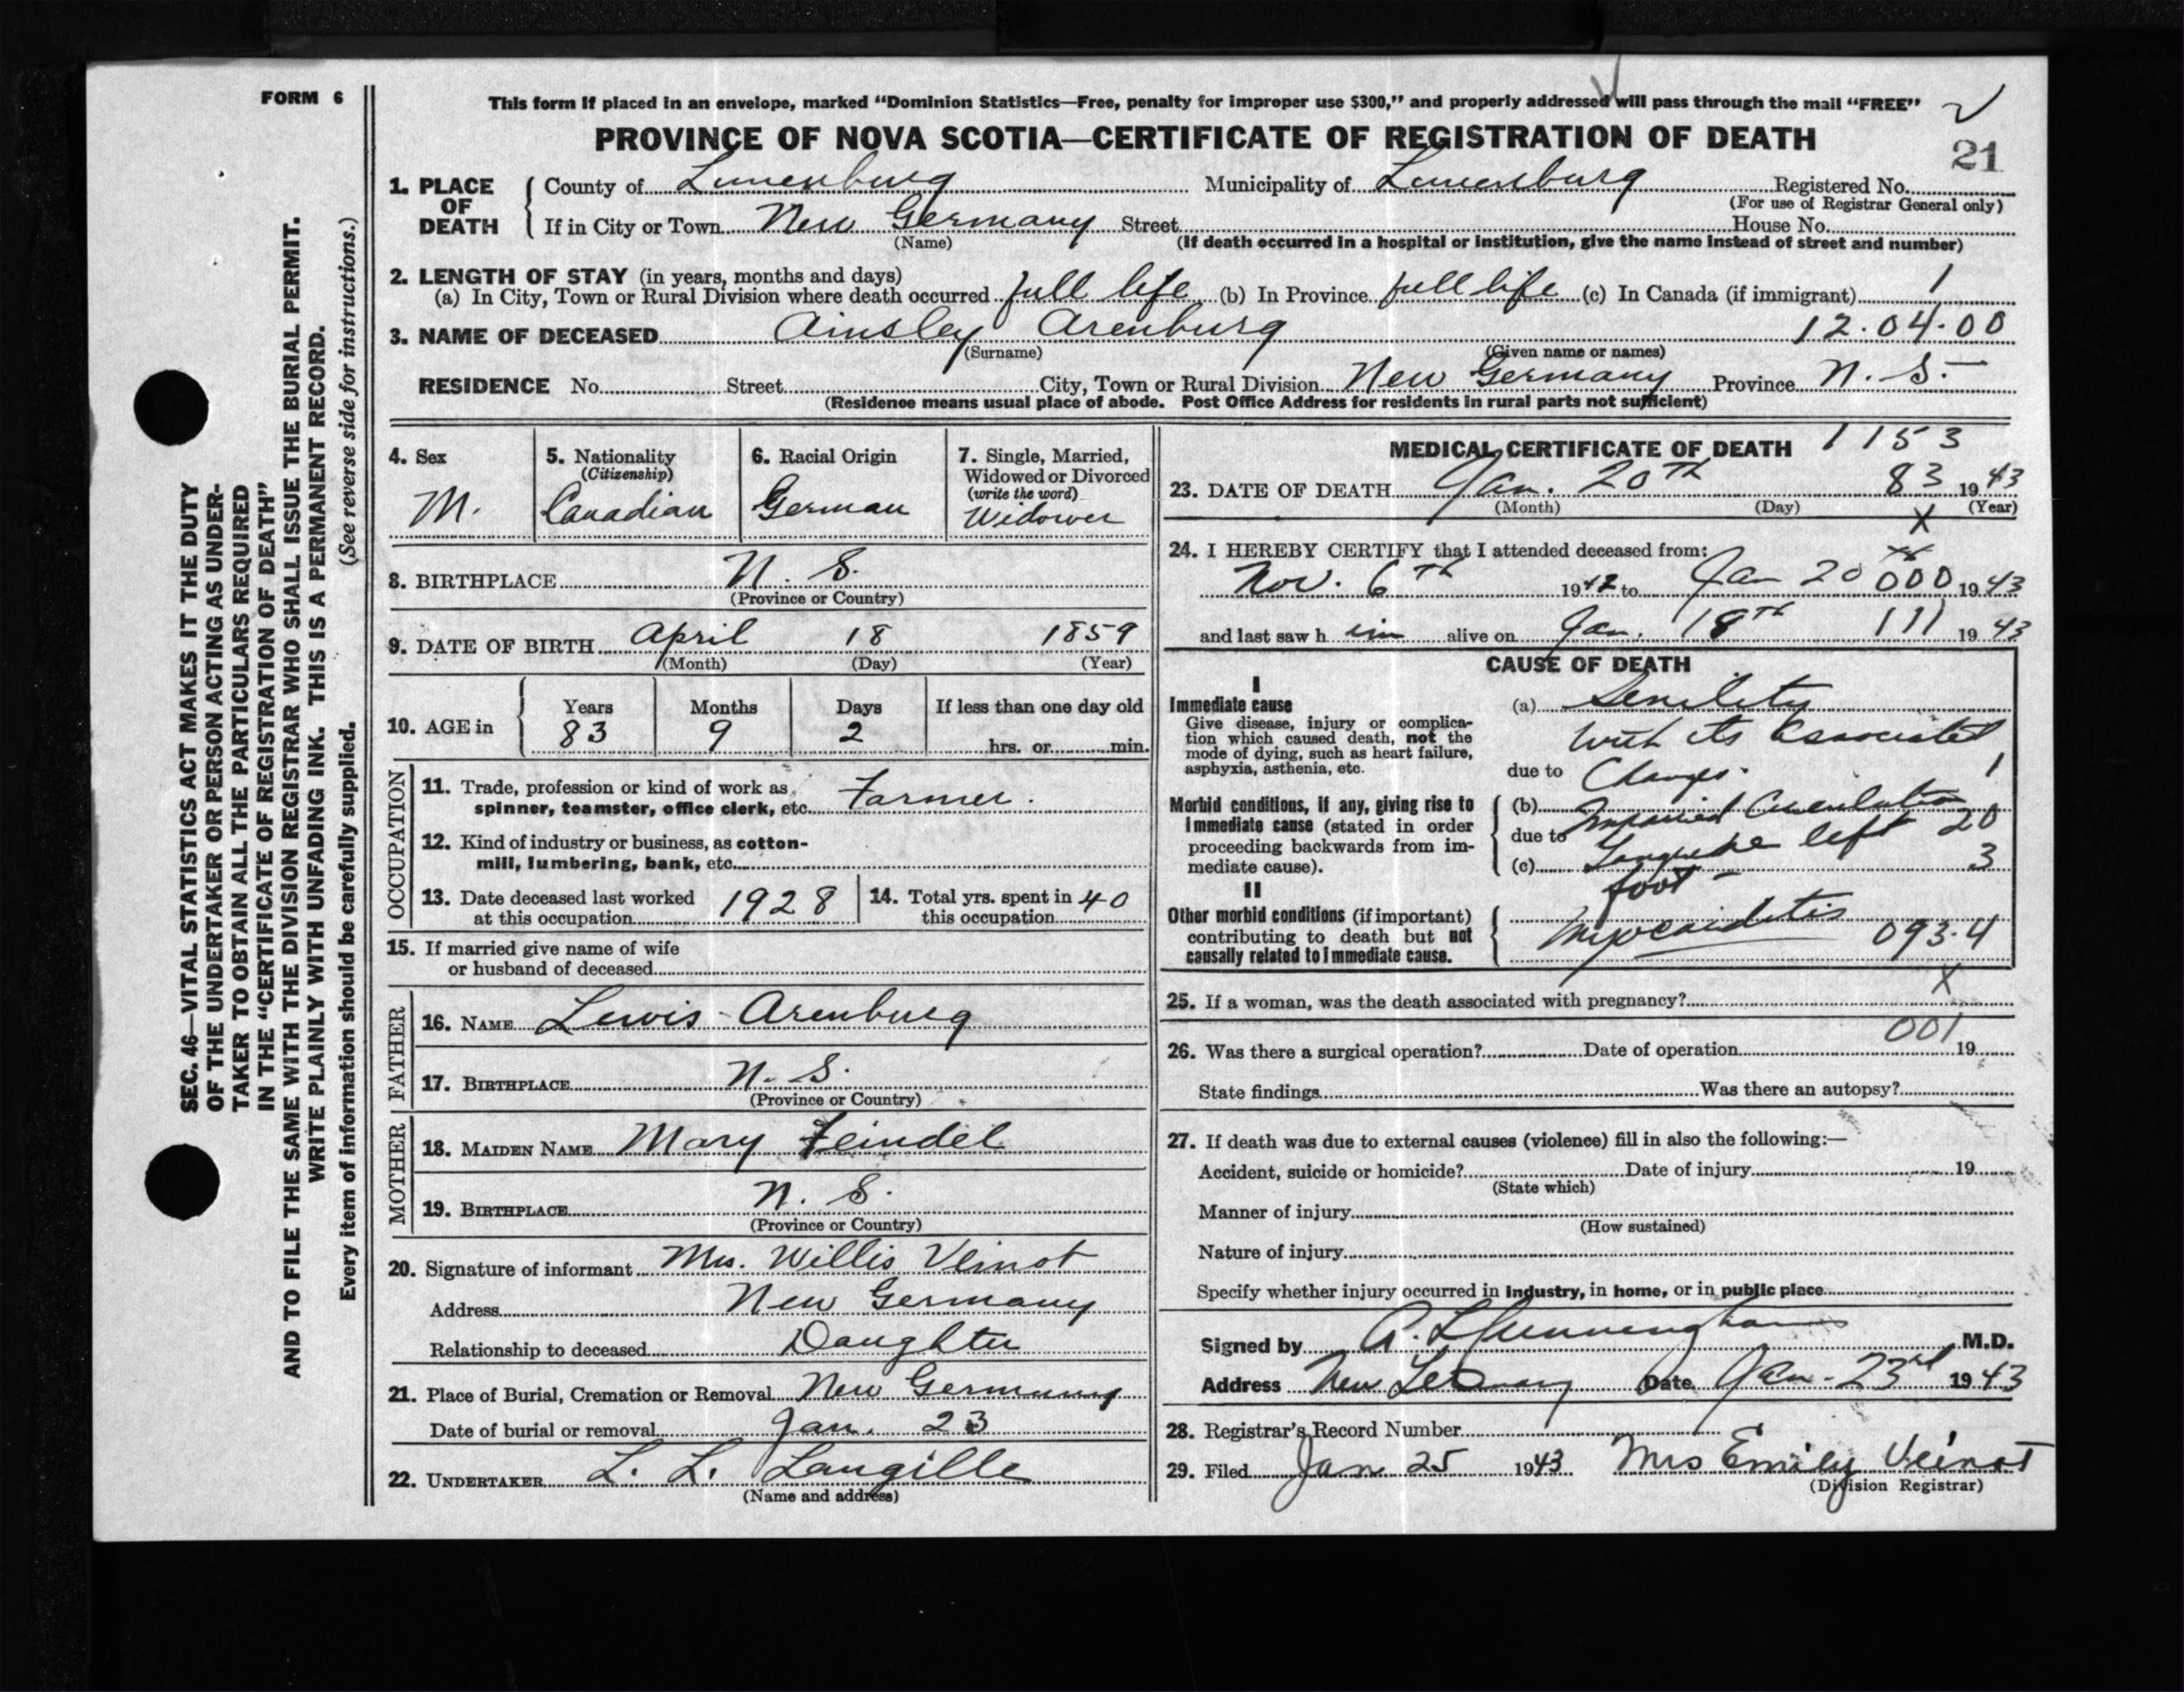 FORM 6
This form if placed in an envelope, marked "Dominion Statistics—Free, penalty for improper use $300," and properly addressed will pass through the mail "FREE"
PROVINCE OF NOVA SCOTIA—CERTIFICATE OF REGISTRATION OF DEATH
21
1. PLACE OF DEATH
County of Lunenburg Municipality of Lunenburg Registered No.
(For use of Registrar General only)
If in City or Town New Germany Street House No.
(Name) (If death occurred in a hospital or institution, give the name instead of street and number)
2. LENGTH OF STAY (in years, months and days)
(a) In City, Town or Rural Division where death occurred full life (b) In Province full life (c) In Canada (if immigrant) 1
3. NAME OF DECEASED Ainsley Arenburg 12.04.00
(Surname) (Given name or names)
RESIDENCE No. Street City, Town or Rural Division New Germany Province N. S.
(Residence means usual place of abode. Post Office Address for residents in rural parts not sufficient)
4. Sex
M.
5. Nationality
(Citizenship)
Canadian
6. Racial Origin
German
7. Single, Married,
Widowed or Divorced
(write the word)
Widower
8. BIRTHPLACE N. S.
(Province or Country)
9. DATE OF BIRTH April 18 1859
(Month) (Day) (Year)
10. AGE in Years Months Days If less than one day old
83 9 2 hrs. or min.
OCCUPATION
11. Trade, profession or kind of work as
spinner, teamster, office clerk, etc. Farmer.
12. Kind of industry or business, as cotton-
mill, lumbering, bank, etc.
13. Date deceased last worked
at this occupation 1928
14. Total yrs. spent in
this occupation 40
15. If married give name of wife
or husband of deceased
FATHER
16. NAME Lewis Arenburg
17. BIRTHPLACE N. S.
(Province or Country)
MOTHER
18. MAIDEN NAME Mary Feindel
19. BIRTHPLACE N. S.
(Province or Country)
20. Signature of informant Mrs. Willis Veinot
Address New Germany
Relationship to deceased Daughter
21. Place of Burial, Cremation or Removal New Germany
Date of burial or removal Jan. 23
22. UNDERTAKER L. L. Langille
(Name and address)
MEDICAL CERTIFICATE OF DEATH 1153
23. DATE OF DEATH Jan. 20th 83 1943
(Month) (Day) (Year)
X
24. I HEREBY CERTIFY that I attended deceased from:
Nov. 6th 1942 to Jan 20th 000 1943
and last saw h im alive on Jan. 18th 111 1943
CAUSE OF DEATH
I
Immediate cause
Give disease, injury or complica-
tion which caused death, not the
mode of dying, such as heart failure,
asphyxia, asthenia, etc.
(a) Senility
with its associated
due to Changes. 1
Morbid conditions, if any, giving rise to
immediate cause (stated in order
proceeding backwards from im-
mediate cause).
(b) Impaired Circulation
due to 20
(c) Gangrene left 3
foot
II
Other morbid conditions (if important)
contributing to death but not
causally related to immediate cause.
Myocarditis 093.4
X
25. If a woman, was the death associated with pregnancy?
001
26. Was there a surgical operation? Date of operation 19
State findings Was there an autopsy?
27. If death was due to external causes (violence) fill in also the following:—
Accident, suicide or homicide? Date of injury 19
(State which)
Manner of injury
(How sustained)
Nature of injury
Specify whether injury occurred in industry, in home, or in public place
Signed by Cunningham M.D.
Address New Germany Date Jan. 23rd 1943
28. Registrar's Record Number
29. Filed Jan 25 1943 Mrs Emily Veinot
(Division Registrar)
SEC. 46—VITAL STATISTICS ACT MAKES IT THE DUTY
OF THE UNDERTAKER OR PERSON ACTING AS UNDER-
TAKER TO OBTAIN ALL THE PARTICULARS REQUIRED
IN THE "CERTIFICATE OF REGISTRATION OF DEATH"
AND TO FILE THE SAME WITH THE DIVISION REGISTRAR WHO SHALL ISSUE THE BURIAL PERMIT.
WRITE PLAINLY WITH UNFADING INK. THIS IS A PERMANENT RECORD.
Every item of information should be carefully supplied. (See reverse side for instructions.)